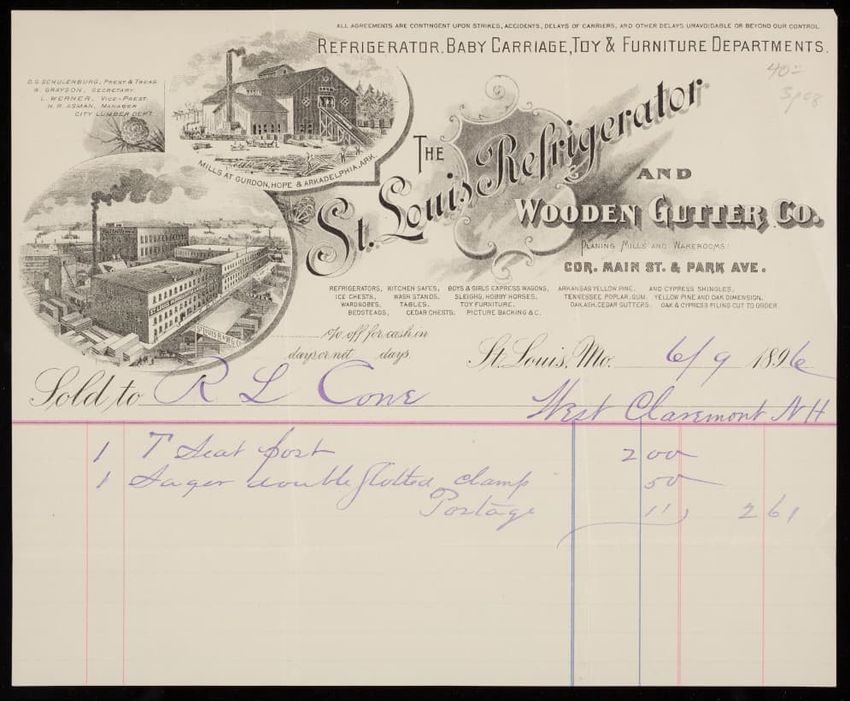 ALL AGREEMENTS ARE CONTINGENT UPON STRIKES, ACCIDENTS, DELAYS OF CARRIERS, AND OTHER DELAYS UNAVOIDABLE OR BEYOND OUR CONTROL.
REFRIGERATOR, BABY CARRIAGE, TOY & FURNITURE DEPARTMENTS.
40-
D. S. SCHULENBURG, PREST & TREAS.
W. GRAYSON, SECRETARY.
L. WERNER, VICE-PREST.
H. R. ASMAN, MANAGER
CITY LUMBER DEPT.
MILLS AT GURDON, HOPE & ARKADELPHIA, ARK.
THE
St. Louis Refrigerator
AND
WOODEN GUTTER CO.
PLANING MILLS AND WAREROOMS:
COR. MAIN ST. & PARK AVE.
REFRIGERATORS, KITCHEN SAFES, BOYS & GIRLS EXPRESS WAGONS, ARKANSAS YELLOW PINE, AND CYPRESS SHINGLES,
ICE CHESTS, WASH STANDS, SLEIGHS, HOBBY HORSES, TENNESSEE POPLAR, GUM, YELLOW PINE AND OAK DIMENSION,
WARDROBES, TABLES, TOY FURNITURE, OAK, ASH, CEDAR GUTTERS, OAK & CYPRESS PILING CUT TO ORDER.
BEDSTEADS, CEDAR CHESTS, PICTURE BACKING & C.
% off for cash in
days or net days
St. Louis, Mo. 6/9 1896
Sold to R L Cone
West Claremont N H
1 T Seat post 2 00
1 Sager double slotted clamp 50
Postage 11 2 61